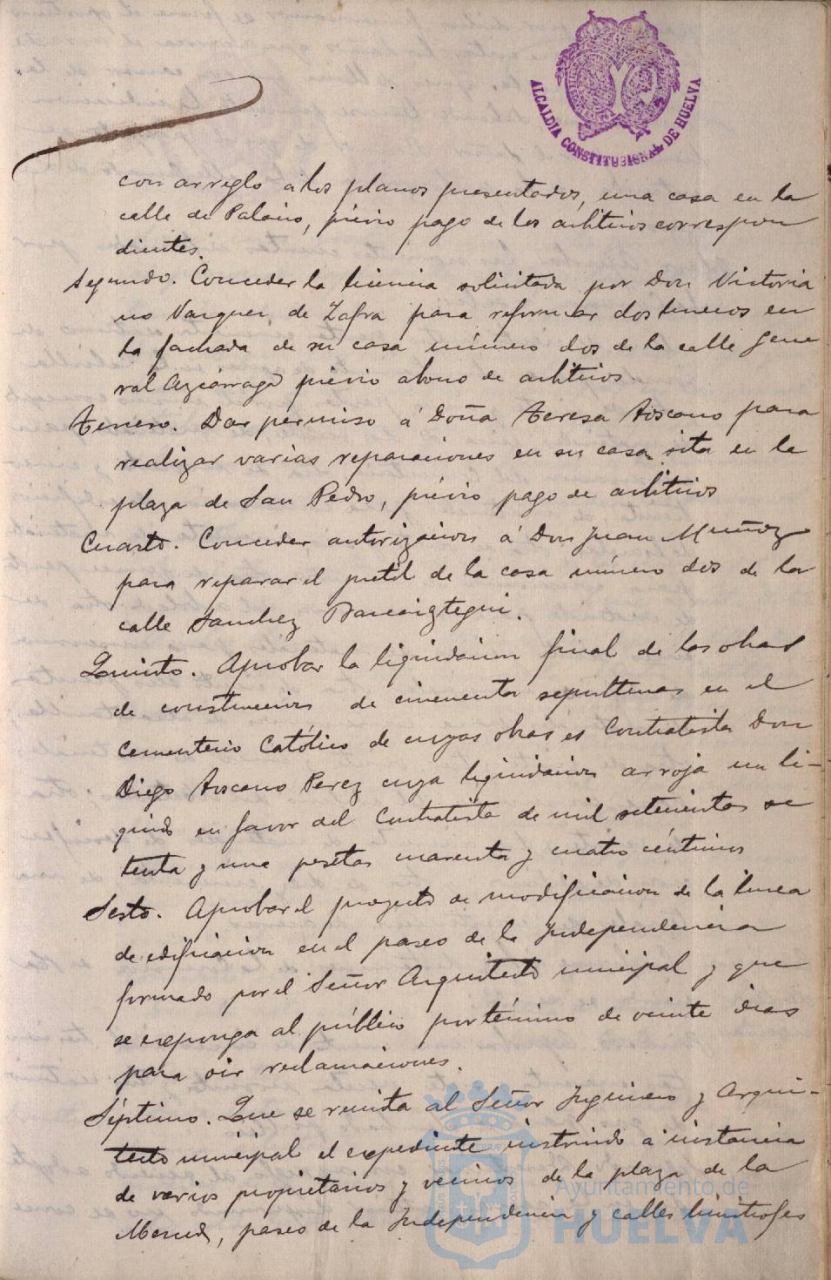 ALCALDIA CONSTITUCIONAL DE HUELVA
con arreglo á los planos presentados, una casa en la
calle de Palacio, prévio pago de los arbitrios correspon
dientes.
Segundo. Conceder la licencia solicitada por Don Victoria
no Vazquez de Zafra para reformar dos huecos en
la fachada de su casa número dos de la calle Gene
ral Azcárraga prévio abono de arbitrios
Tercero. Dar permiso á Doña Teresa Toscano para
realizar varias reparaciones en su casa sita en la
plaza de San Pedro, prévio pago de arbitrios
Cuarto. Conceder autorizacion á Don Juan Muñoz
para reparar el pretil de la casa número dos de la
calle Sanchez Barcaiztegui.
Quinto. Aprobar la liquidacion final de las obras
de construccion de cincuenta sepulturas en el
Cementerio Católico de cuyas obras es Contratista Don
Diego Toscano Perez cuya liquidacion arroja un li-
quido en favor del Contratista de mil setecientas se
tenta y una pesetas cuarenta y cuatro céntimos
Sesto. Aprobar el proyecto de modificacion de la linea
de edificacion en el paseo de la Independencia
formado por el Señor Arquitecto municipal y que
se exponga al público por término de veinte dias
para oir reclamaciones.
Séptimo. Que se remita al Señor Ingeniero y Arqui-
tecto municipal el expediente instruido á instancia
de varios propietarios y vecinos de la plaza de la
Merced, paseo de la Independencia y calles limitrofes
Ayuntamiento de
HUELVA